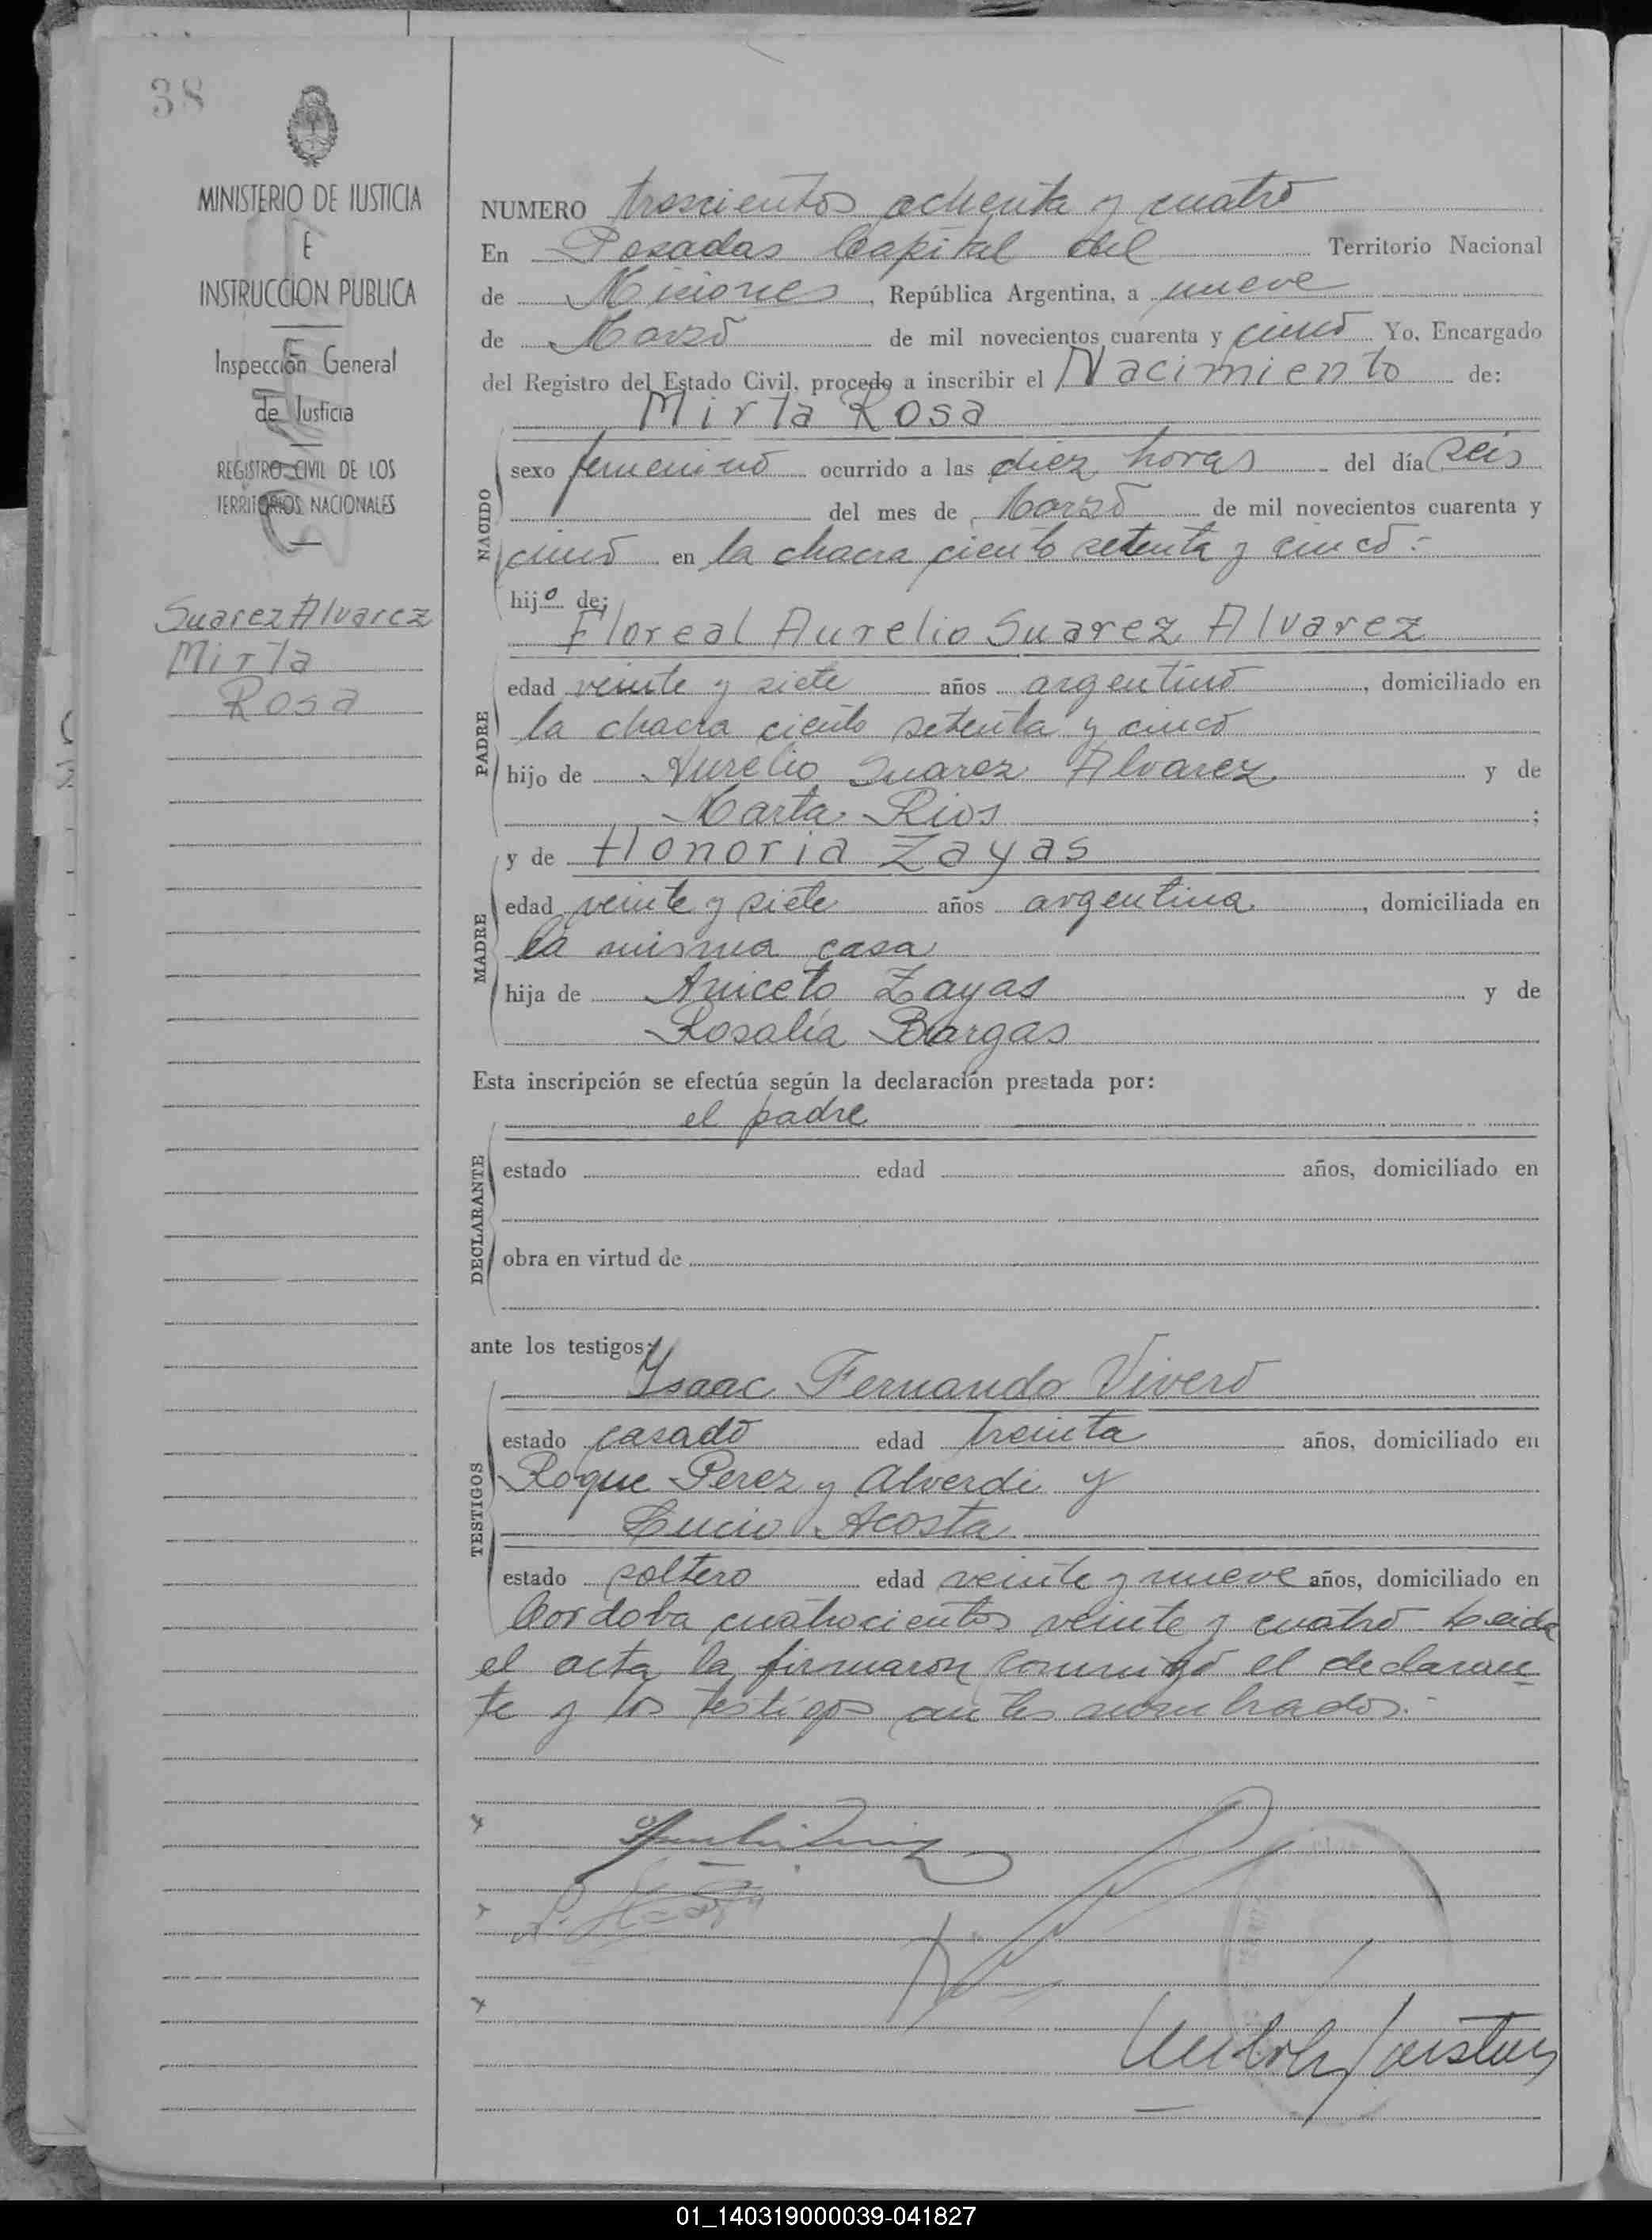 38
MINISTERIO DE JUSTICIA
E
INSTRUCCION PUBLICA
Inspección General
de Justicia
REGISTRO CIVIL DE LOS
TERRITORIOS NACIONALES
Suarez Alvarez
Mirta
Rosa
NUMERO trescientos ochenta y cuatro
En Posadas Capital del Territorio Nacional
de Misiones, República Argentina, a nueve
de Marzo de mil novecientos cuarenta y cinco Yo, Encargado
del Registro del Estado Civil, procedo a inscribir el Nacimiento de:
Mirta Rosa
NACIDO
sexo femenino ocurrido a las diez horas del día seis
del mes de Marzo de mil novecientos cuarenta y
cinco en la chacra ciento setenta y cinco.-
hijo de:
Floreal Aurelio Suarez Alvarez
PADRE
edad veinte y siete años argentino, domiciliado en
la chacra ciento setenta y cinco
hijo de Aurelio Suarez Alvarez y de
Marta Rios;
y de Honoria Zayas
MADRE
edad veinte y siete años argentina, domiciliada en
la misma casa
hija de Aniceto Zayas y de
Rosalía Bargas
Esta inscripción se efectúa según la declaración prestada por:
el padre
DECLARANTE
estado edad años, domiciliado en
obra en virtud de
ante los testigos:
Ysaac Fernando Vivero
TESTIGOS
estado casado edad treinta años, domiciliado en
Roque Perez y Alverdi y
Lucio Acosta
estado soltero edad veinte y nueve años, domiciliado en
Cordoba cuatrocientos veinte y cuatro Leida
el acta la firmaron conmigo el declaran=
te y los testigos antes nombrados.-
01_140319000039-041827